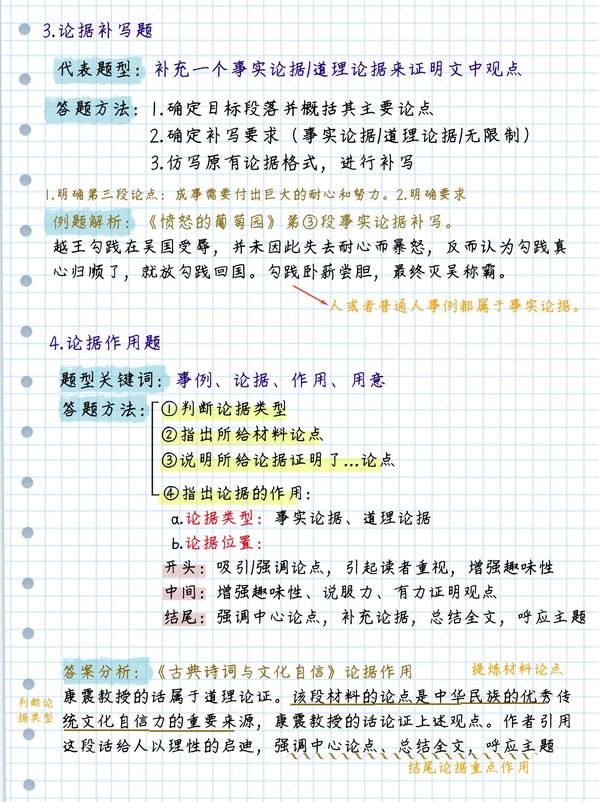 3.论据补写题
代表题型：补充一个事实论据/道理论据来证明文中观点
答题方法：1.确定目标段落并概括其主要论点
2.确定补写要求（事实论据/道理论据/无限制）
3.仿写原有论据格式，进行补写
1.明确第三段论点：成事需要付出巨大的耐心和努力。2.明确要求
例题解析：《愤怒的葡萄园》第③段事实论据补写。
越王勾践在吴国受辱，并未因此失去耐心而暴怒，反而认为勾践真
心归顺了，就放勾践回国。勾践卧薪尝胆，最终灭吴称霸。
人或者普通人事例都属于事实论据。
4.论据作用题
题型关键词：事例、论据、作用、用意
答题方法：①判断论据类型
②指出所给材料论点
③说明所给论据证明了...论点
④指出论据的作用：
a.论据类型：事实论据、道理论据
b.论据位置：
开头：吸引/强调论点，引起读者重视，增强趣味性
中间：增强趣味性、说服力、有力证明观点
结尾：强调中心论点，补充论据，总结全文，呼应主题
答案分析：《古典诗词与文化自信》论据作用
提炼材料论点
康震教授的话属于道理论证。该段材料的论点是中华民族的优秀传
判断论
据类型
统文化自信力的重要来源，康震教授的话论证上述观点。作者引用
这段话给人以理性的启迪，强调中心论点、总结全文，呼应主题
结尾论据重点作用